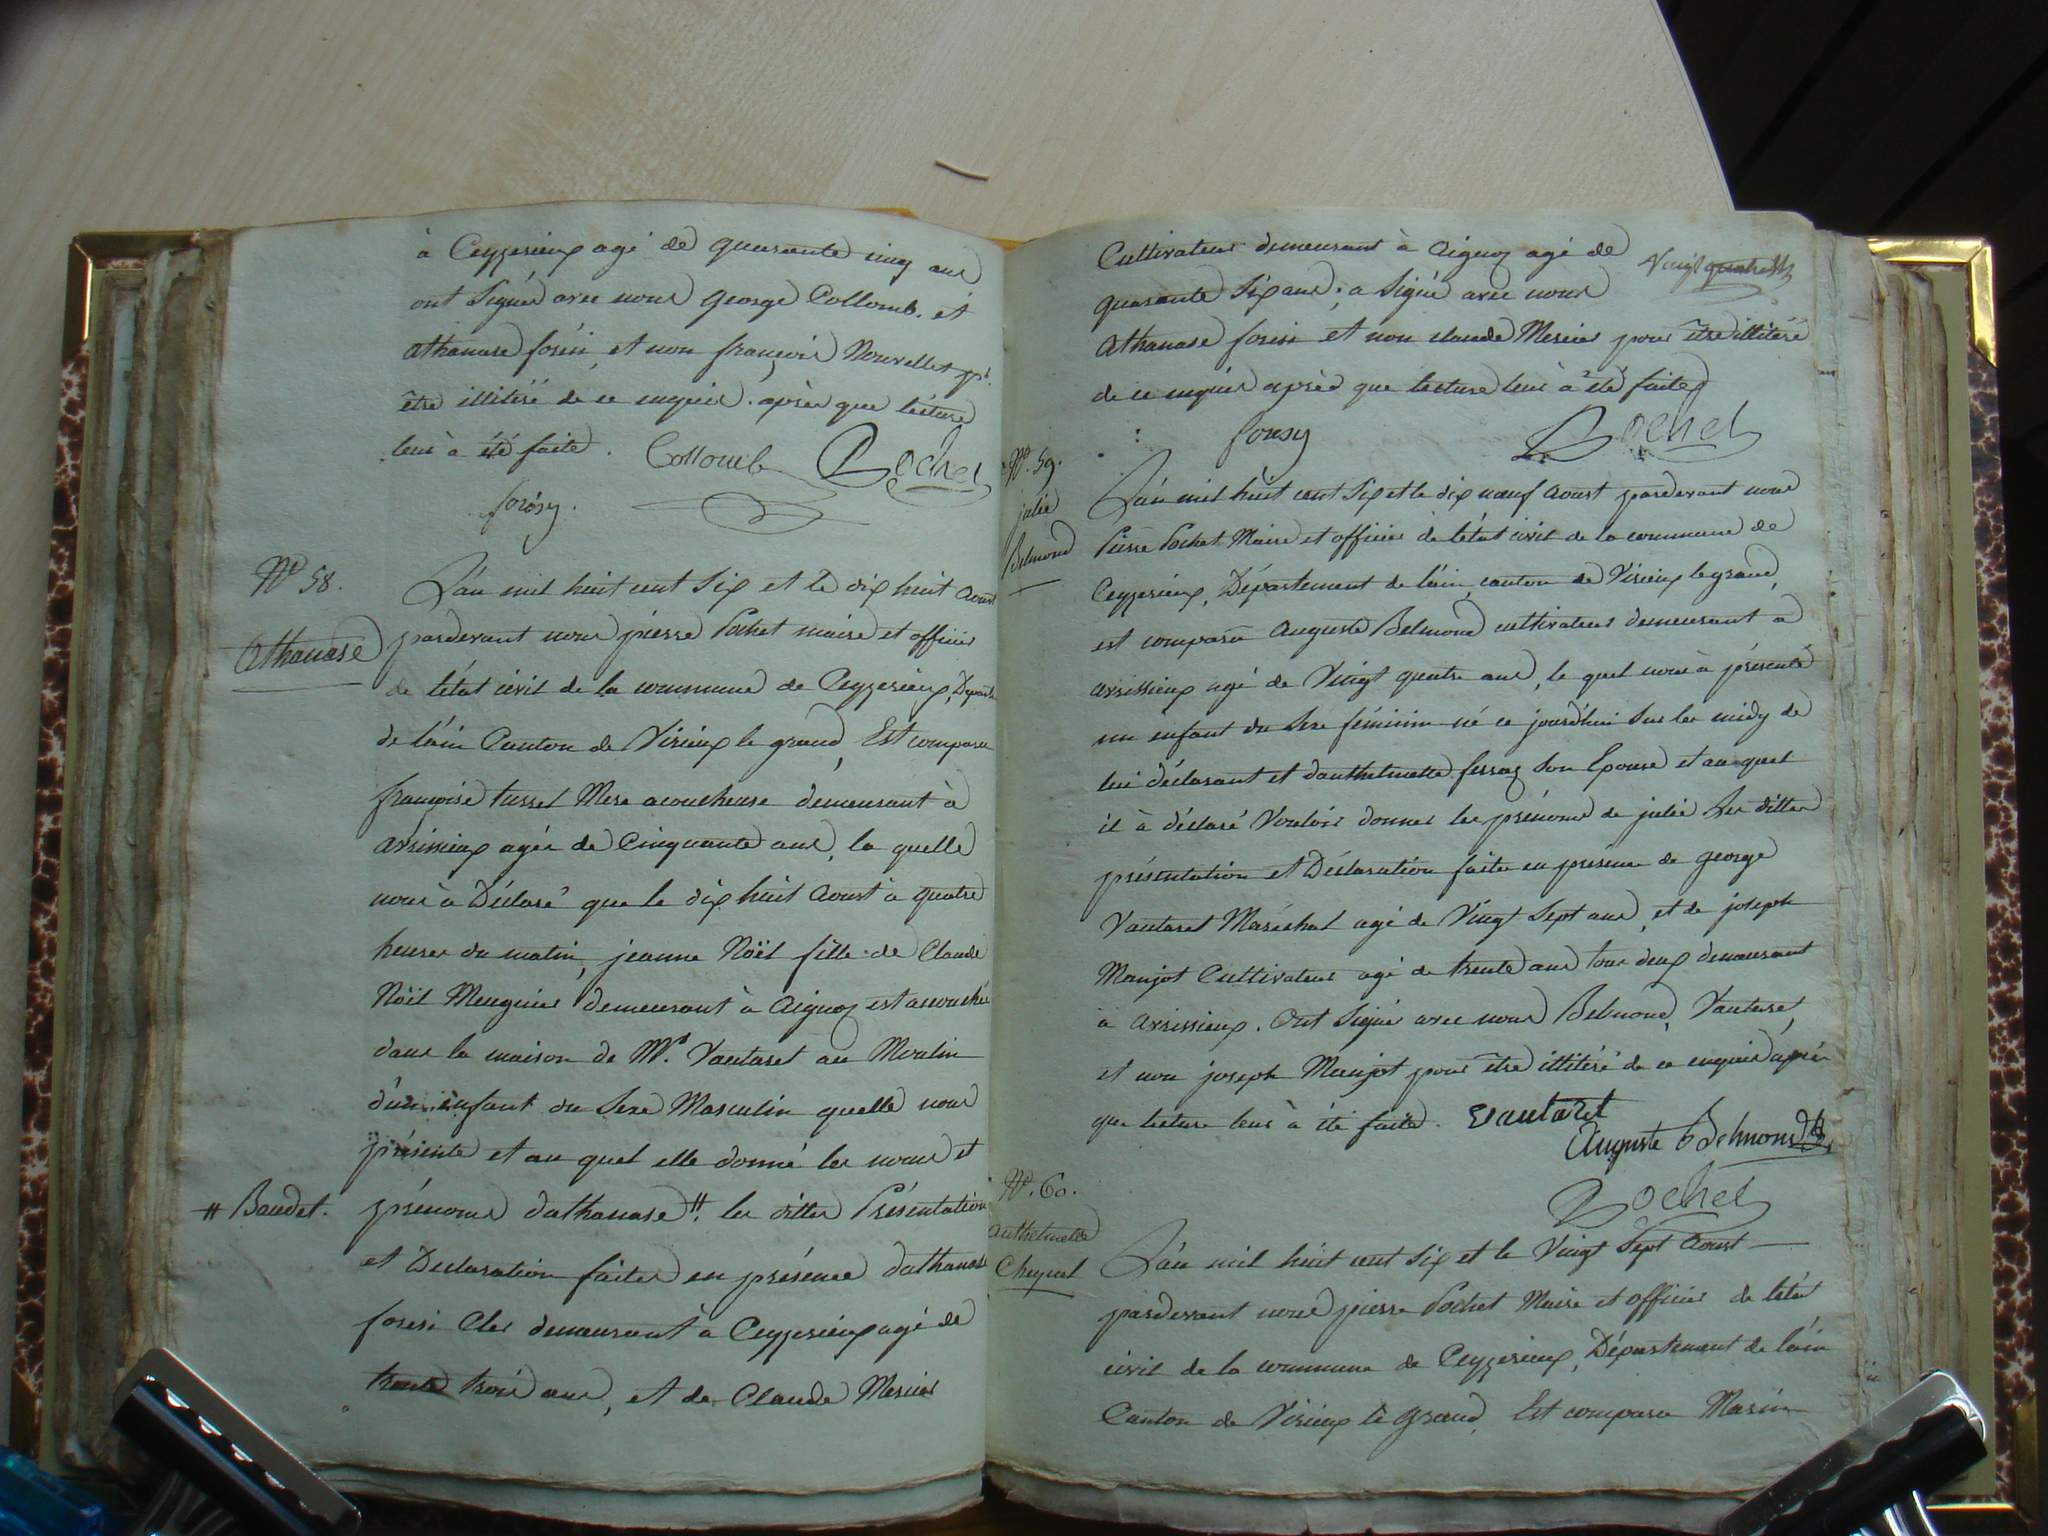 à Ceyzerieux agé de quarante cinq ans
ont Signés avec nous George Collomb. et
athanase forési, et non françois Nouvellet pr.
être illitéré de ce enquis. après que lecture
leur à été faite. Collomb Pochet
forésy.
No. 58.
Athanase
L'an mil huit cent Six et le dix huit Aoust
pardevant nous pierre Pochet maire et officier
de l'état civil de la commune de Ceyzerieux, Départ.
de l'ain Canton de Virieux le grand, Est comparu
françoise tusset Mere acoucheuse demeurant à
avrissieux agée de Cinquante ans, la quelle
nous à Déclaré que le dix huit Aoust à quatre
heures du matin, jeanne Noël fille de Claude
Noël Meugnier demeurant à Aignoz est acouchée
dans la maison de Mr. Vautaret au Moulin
d'un enfant du Sexe Masculin quelle nous
présente et au quel elle donné les noms et
# Baudet.
prénoms dathanase #. les dittes Présentation
et Declaration faites en présence dathanase
foresi Clerc demeurant à Ceyzerieux agé de
trente trois ans, et de Claude Mercier
Vingt quatre
Cultivateur demeurant à Aignoz agé de
quarante Six ans; a Signé avec nous
Athanase foresi et non claude Mercier pour être illitéré
de ce enquis après que lecture leur à été faite
foresy Pochet
No. 59.
julie
Belmond
L'an mil huit cent Six et le dix neuf Aoust pardevant nous
Pierre Pochet Maire et officier de l'état civil de la commune de
Ceyzerieux, Département de l'ain, canton de Virieux le grand,
est comparu Auguste Belmond cultivateur demeurant à
avrissieux agé de Vingt quatre ans, le quel nous à présenté
un enfant du Sexe féminin né ce jourd'hui Sur les midy de
lui déclarant et danthelmette ferraz Son Epouse et au quel
il à déclaré Vouloir donner les prénoms de julie Les dittes
présentation et Déclaration faites en présence de George
Vautaret Maréchal agé de Vingt Sept ans, et de joseph
Maujot Cultivateur agé de trente ans tous deux demeurant
à avrissieux. Ont Signés avec nous Belmond, Vautaret,
et non joseph Maujot pour être illitéré de ce enquis après
que lecture leur à été faite. Vautaret
Auguste Belmond
Pochet
No. 60.
anthelmette
Cheynel
L'an mil huit cent Six et le Vingt Sept Aoust
pardevant nous pierre Pochet Maire et officier de l'état
civil de la commune de Ceyzerieux, Département de l'ain
Canton de Virieux le Grand, Est comparu Marin